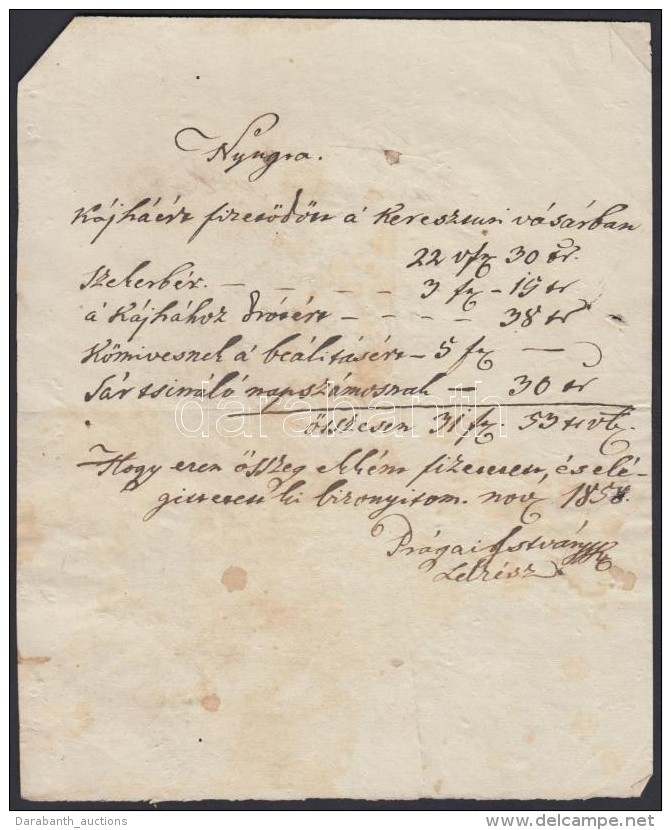 Nyugra.
Kájháért fizetődött á Kereszturi vásárban
22 vfr 30 xr.
Szekerbér. — — — — 3 fr – 19 xr
á Kájhához drótért — — — 38 xr
Kömivesnek á beálitásért – 5 fr —
Sártsináló napszámosnak — 30 xr
összesen 31 fr. 53 xr
Hogy ezen összeg fizetetett, és elé-
gittetett ki bizonyitom. nov 1858.
Prágai István
darabanth
Darabanth_auctions
http://www.delcampe.net